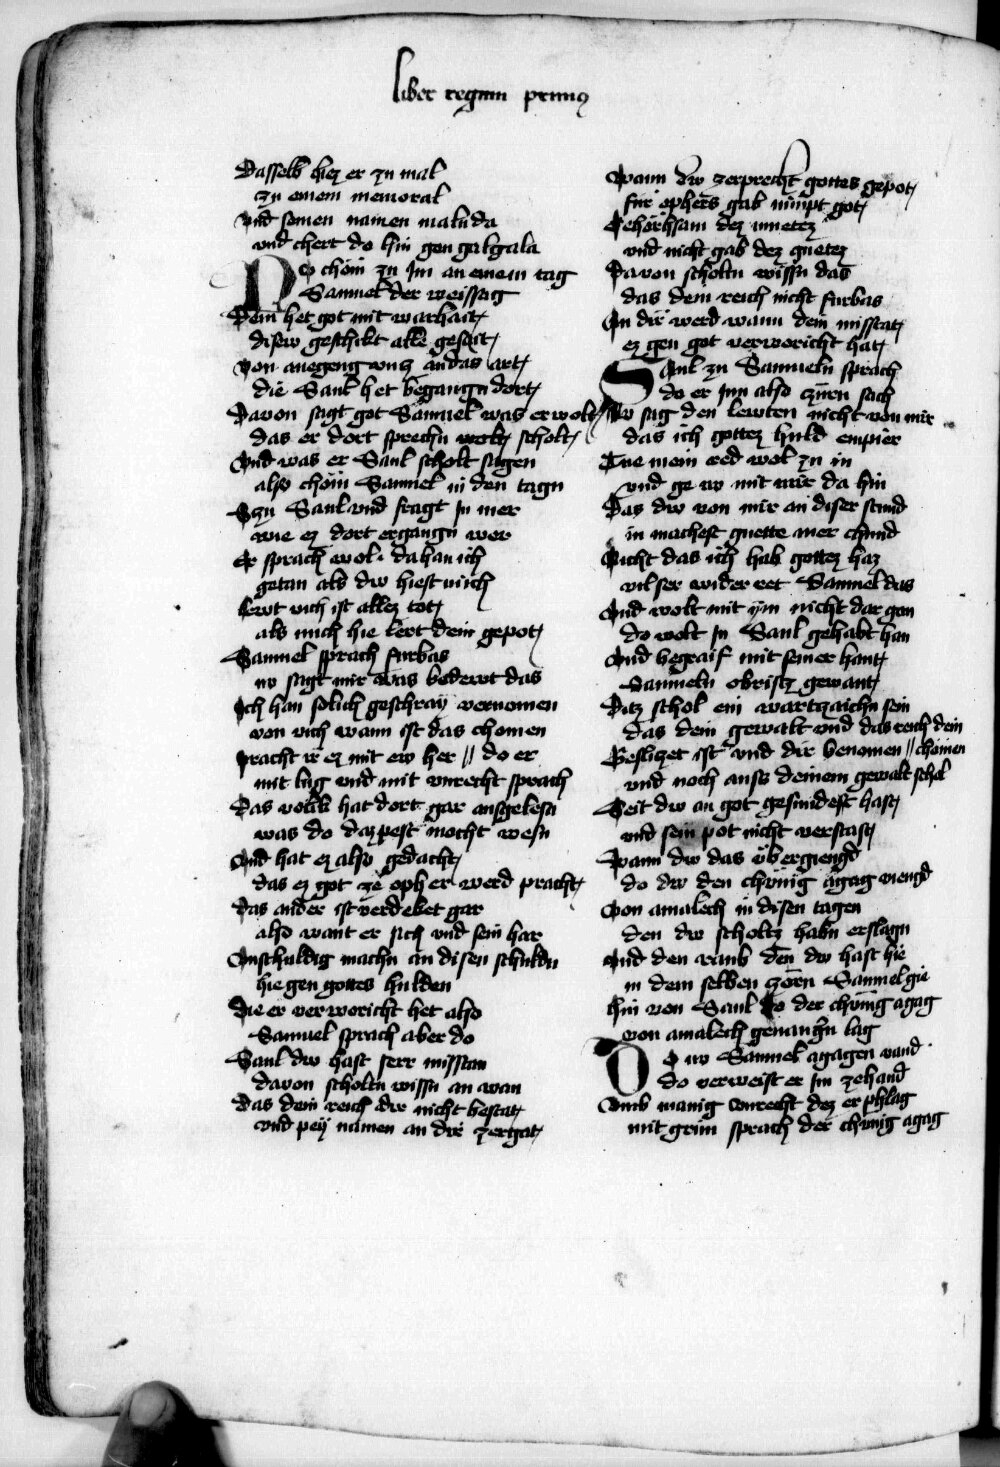 liber regum primus
Dasselb hiez er zu mal
zu einem memoral
Vnd seinen namen maluda
vnd chert do hin gen galgala
Do chom zu Im an einem tag
Samuel der weissag
Dem het got mit warhait
disew geschikt alle gesait
Von anegeng vncz an das art
die Saul het begangn dort
Davon sagt got Samuel was er wolt
das er dort sprechn wolt scholt
Vnd was er Saul scholt sagen
also chom Samuel in den tagn
Hyn Saul vnd fragt In mer
wie ez dort ergangn wer
Er sprach wol da han ich
getan als dw hiest mich
lewt vich ist allez tot
als mich hie lert dein gepot
Samuel sprach furbas
nv sagt mir was bedewt das
Ich han solich geschray vernomen
von vich wann ist das chomen
pracht ir ez mit ew her // do er
mit lug vnd mit vnrecht sprach
Das volkh hat dort gar ausgelesn
was do daz pest mocht wesn
Vnd hat ez also gedacht
das ez got ze opher werd pracht
das ander ist verderbet gar
also want er sich vnd sein har
Vnschuldig machn an disen schuldn
hie gen gottes hulden
Die er verworicht het also
Samuel sprach aber do
Saul dw hast serr misstan
davon scholtu wissn an wan
das dein reich dir nicht bestat
vnd pey namen an dir zergat
Wann dw zerprecht gottes gepot
für ophers gab nimpt got
Gehorhsam dez muetez
vnd nicht gab dez guetez
Davon scholtu wissn das
das dein reich nicht furbas
An dir werd wann dein misstat
ez gen got verworicht hat
Saul zu Samueln sprach
do er Inn also zurn sach
Nv sag den lewten nicht von mir
das ich gottez huld empir
Tue mein red wol zu in
vnd ge nv mit mir da hin
Das dw von mir an diser stund
in machest guette mer chund
Nicht das ich hab gottez haz
vil ser wider ret Samuel das
Vnd wolt mit ym nicht dar gan
do wolt In Saul gehabt han
Vnd begraif mit seiner hant
Samueln obristz gewant
Ditz schol ein wartzaichn sein
das dein gewalt vnd das reich dein
Geslizet ist vnd dir benomen // chomen
vnd noch auss deinem gewalt schol
Seit dw an got gesundest hast
vnd sein pot nicht verstast
Wann dw das übergiengd
do dw den chunig agag viengd
Von amalech in disen tagen
den dw scholtz habn erslagn
Vnd den raub den dw hast hie
in dem selben zorn Samuel gie
hin von Saul do der chunig agag
von amalech gevangn lag
Do nv Samuel agagen vand
do verweist er Im zehand
Vmb manig vnrecht dez er phlag
mit grim sprach der chunig agag